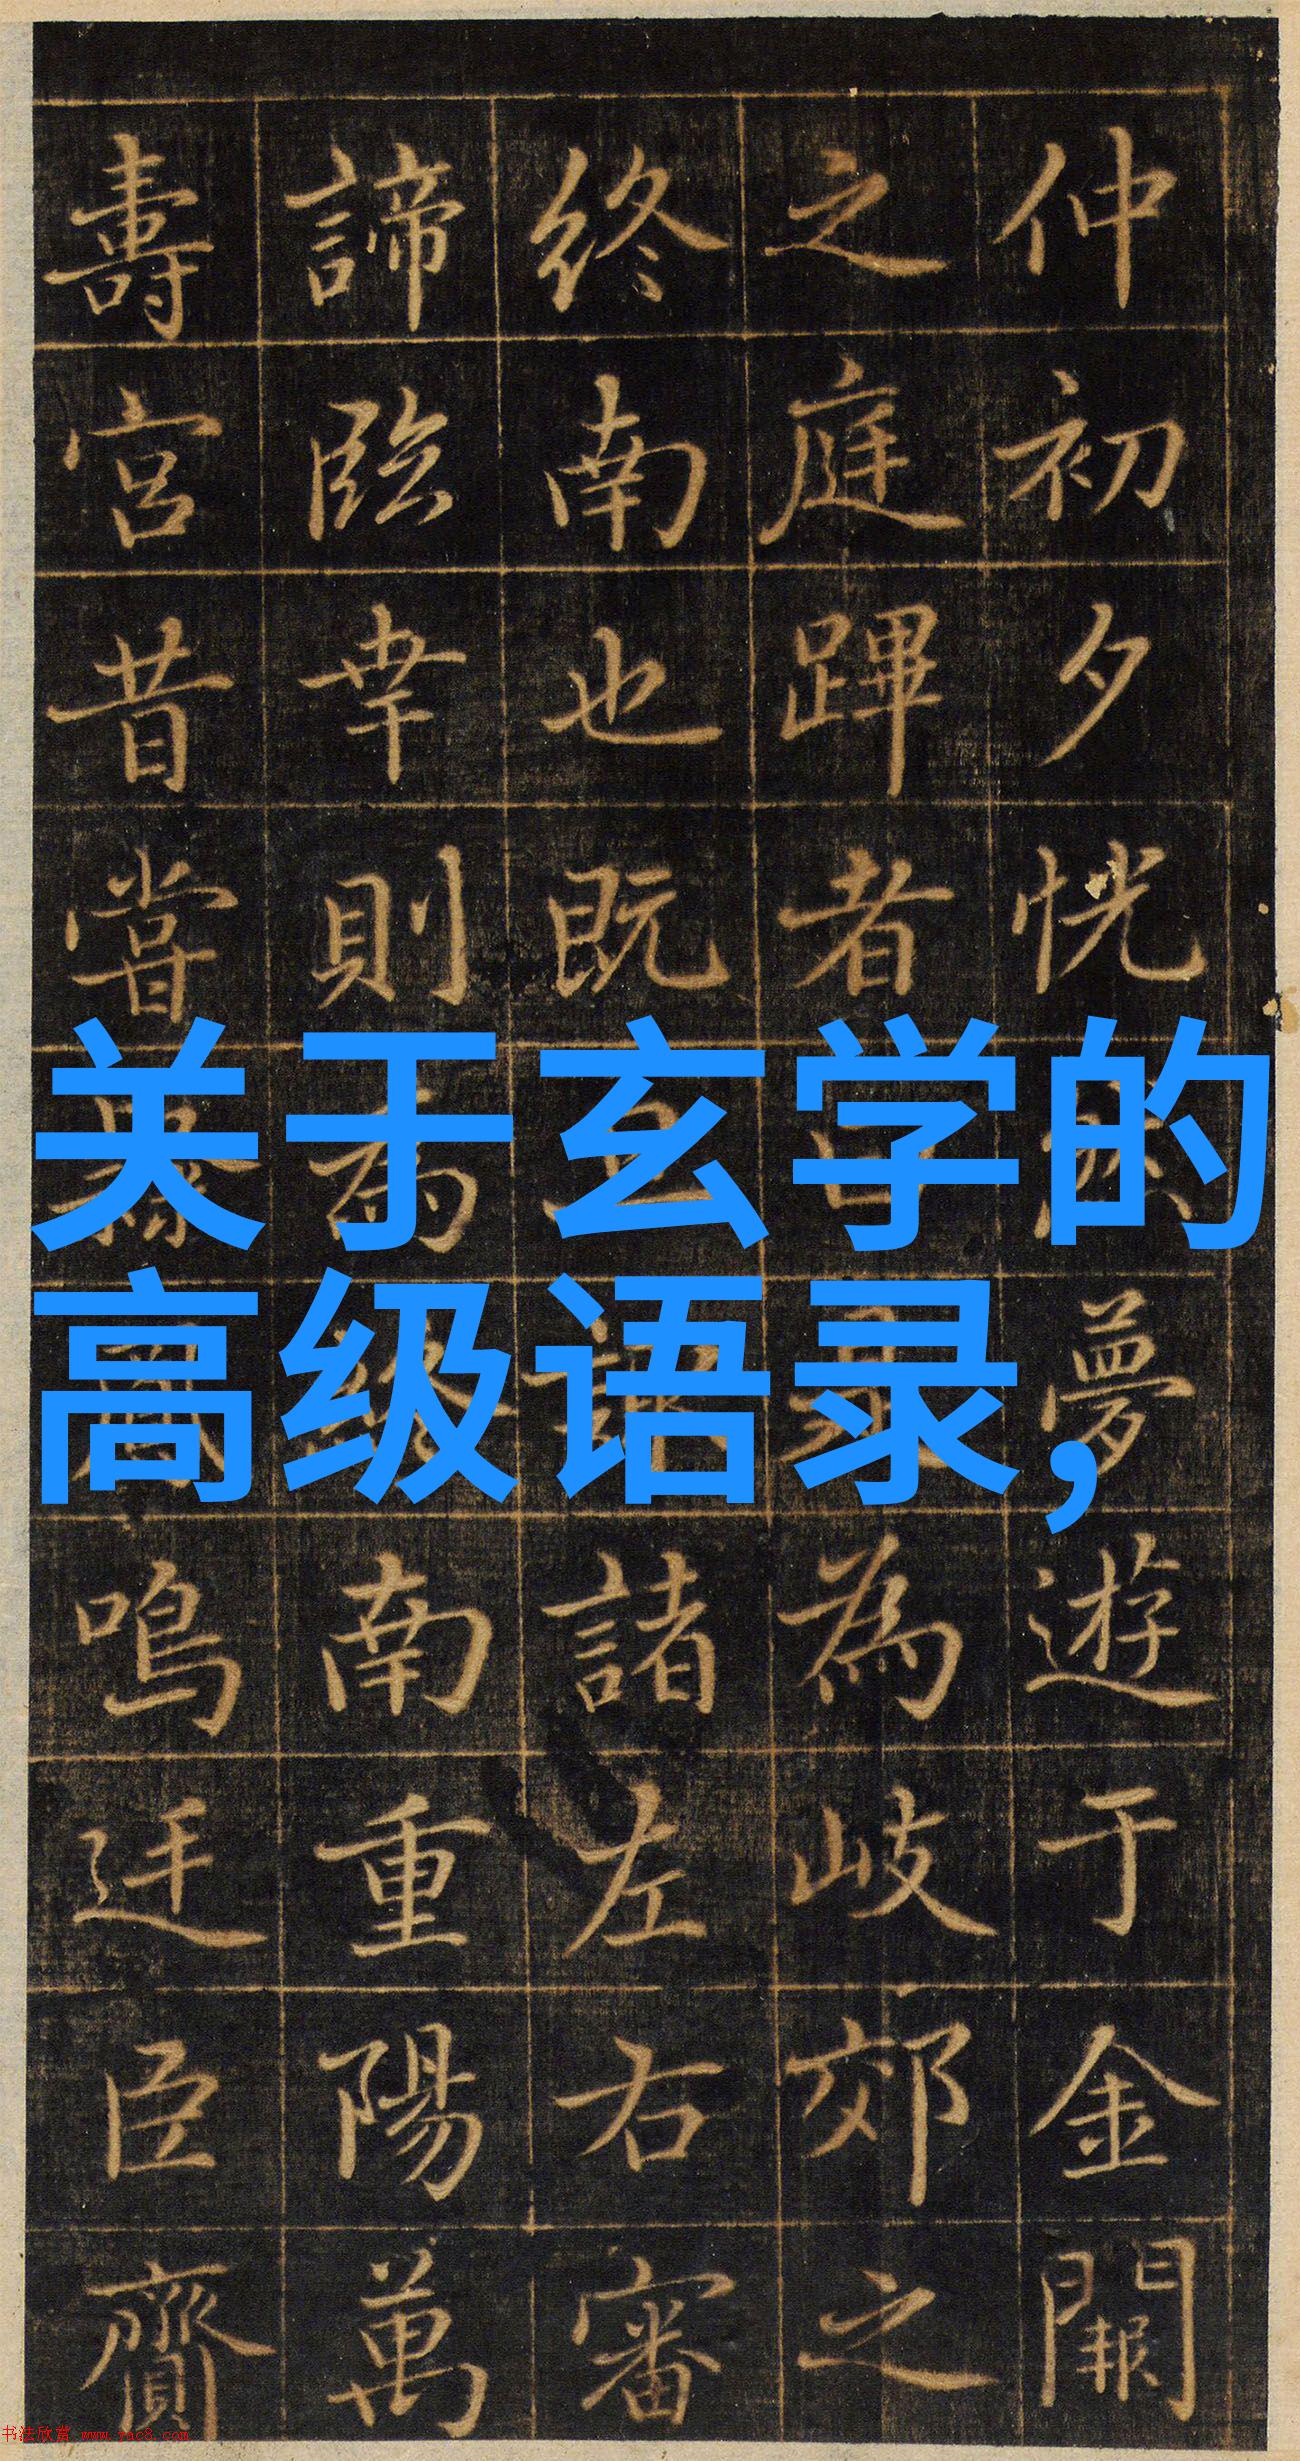 仲初夕恍然夢遊于金闕
之庭蹕者為岐郊之
終南也既諸左右審
諦臨幸則為終南重陽萬
壽宮昔嘗鳴廷臣齎
关于玄学的
高级语录,
书法欣赏 www.yac8.com